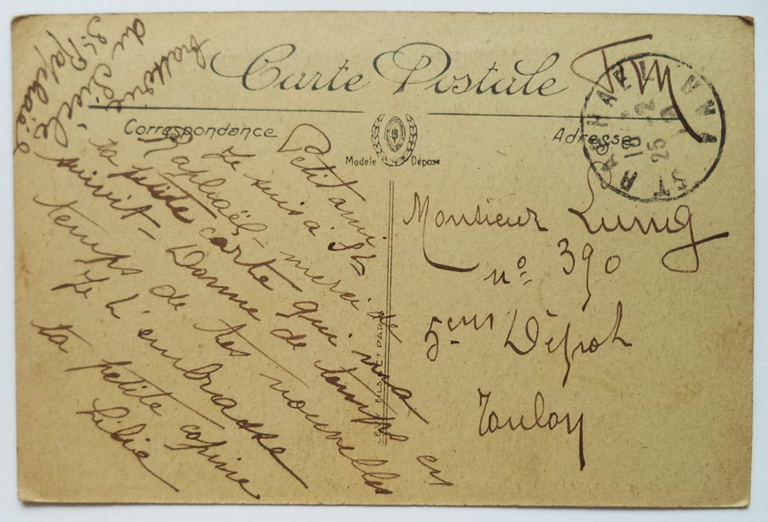 Carte Postale
Correspondance
Adresse
Modèle Déposé
Fm
ST RAPHAEL VAR
18
25
Petit ami
Je suis à St
Raphaël - merci de
ta petite carte qui m'a
suivit - Donne de temps en
temps de tes nouvelles
Je t'embrasse
ta petite copine
Lilie
du Siècle
St Raphaël
Monsieur Lunig
n° 390
5ème Dépot
Toulon